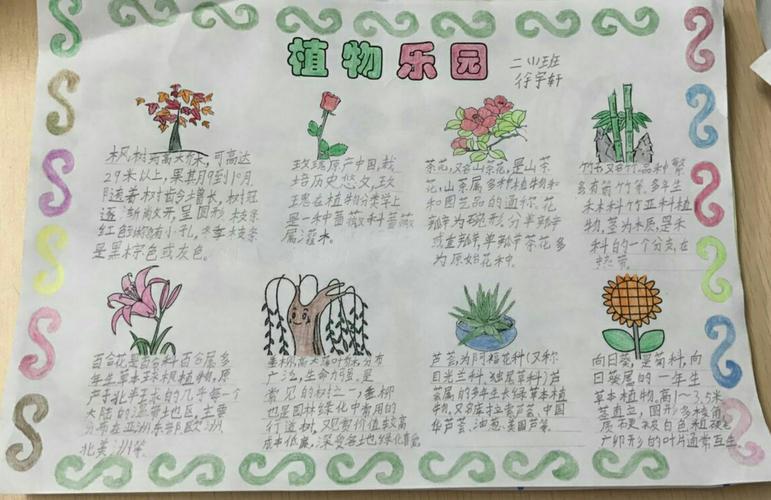 植物乐园
二小班
徐宇轩
枫树为高大乔木,可高达
29米以上,果其月9到10月
随着树龄增长,树冠
逐渐敞开,呈圆形 枝条
红色 有小孔,冬季枝条
是黑棕色或灰色。
玫瑰原产中国,栽
培历史悠久,玫
瑰在植物分类学上
是一种蔷薇科蔷薇
属灌木。
茶花,又名山茶花,是山茶
花,山茶属多种植物和
和园艺品的通称,花
瓣为碗形,分单瓣
或重瓣,单瓣茶花多
为原始花种。
竹 又名竹品种繁
多有箭竹等,多年生
禾本科竹亚科植
物,茎为木质,是禾
科的一个分支,在
热带
百合花是百合科百合属多
年生草本球根植物,原
产于北半球的几乎每一个
大陆的温带地区,主要
分布在亚洲东部欧洲
北美洲等。
垂柳,高大落叶 分布
广泛,生命力强,是
常见的树之一,垂柳
也是园林绿化中常用的
行道树,观赏价值较高
成本低廉,深受各地绿化喜爱
芦荟,为阿福花科(又称
日光兰科、独尾草科)芦
荟属的多年生常绿草本植
物,又名库拉索芦荟、中国
华芦荟、油葱、美国芦荟。
向日葵,是菊科,向
日葵属的一年生
草本植物,高1~3.5米
茎直立,圆形多棱角
质 被白色粗硬毛
广卵形的叶片通常互生